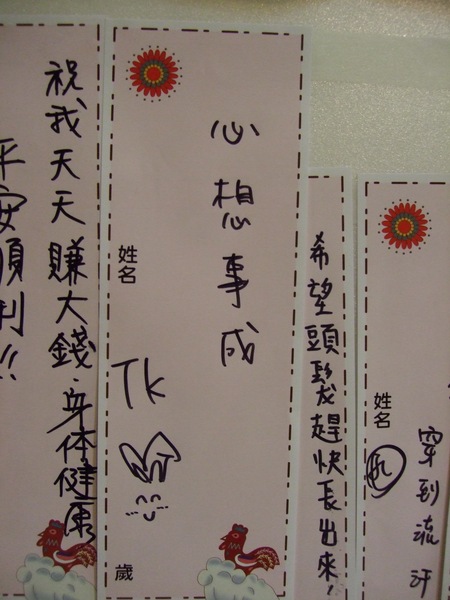 祝我天天賺大錢.身体健康
平安順利!!
心想事成
姓名
Tk
歲
希望頭髮趕快長出來!
姓名
穿到流汗